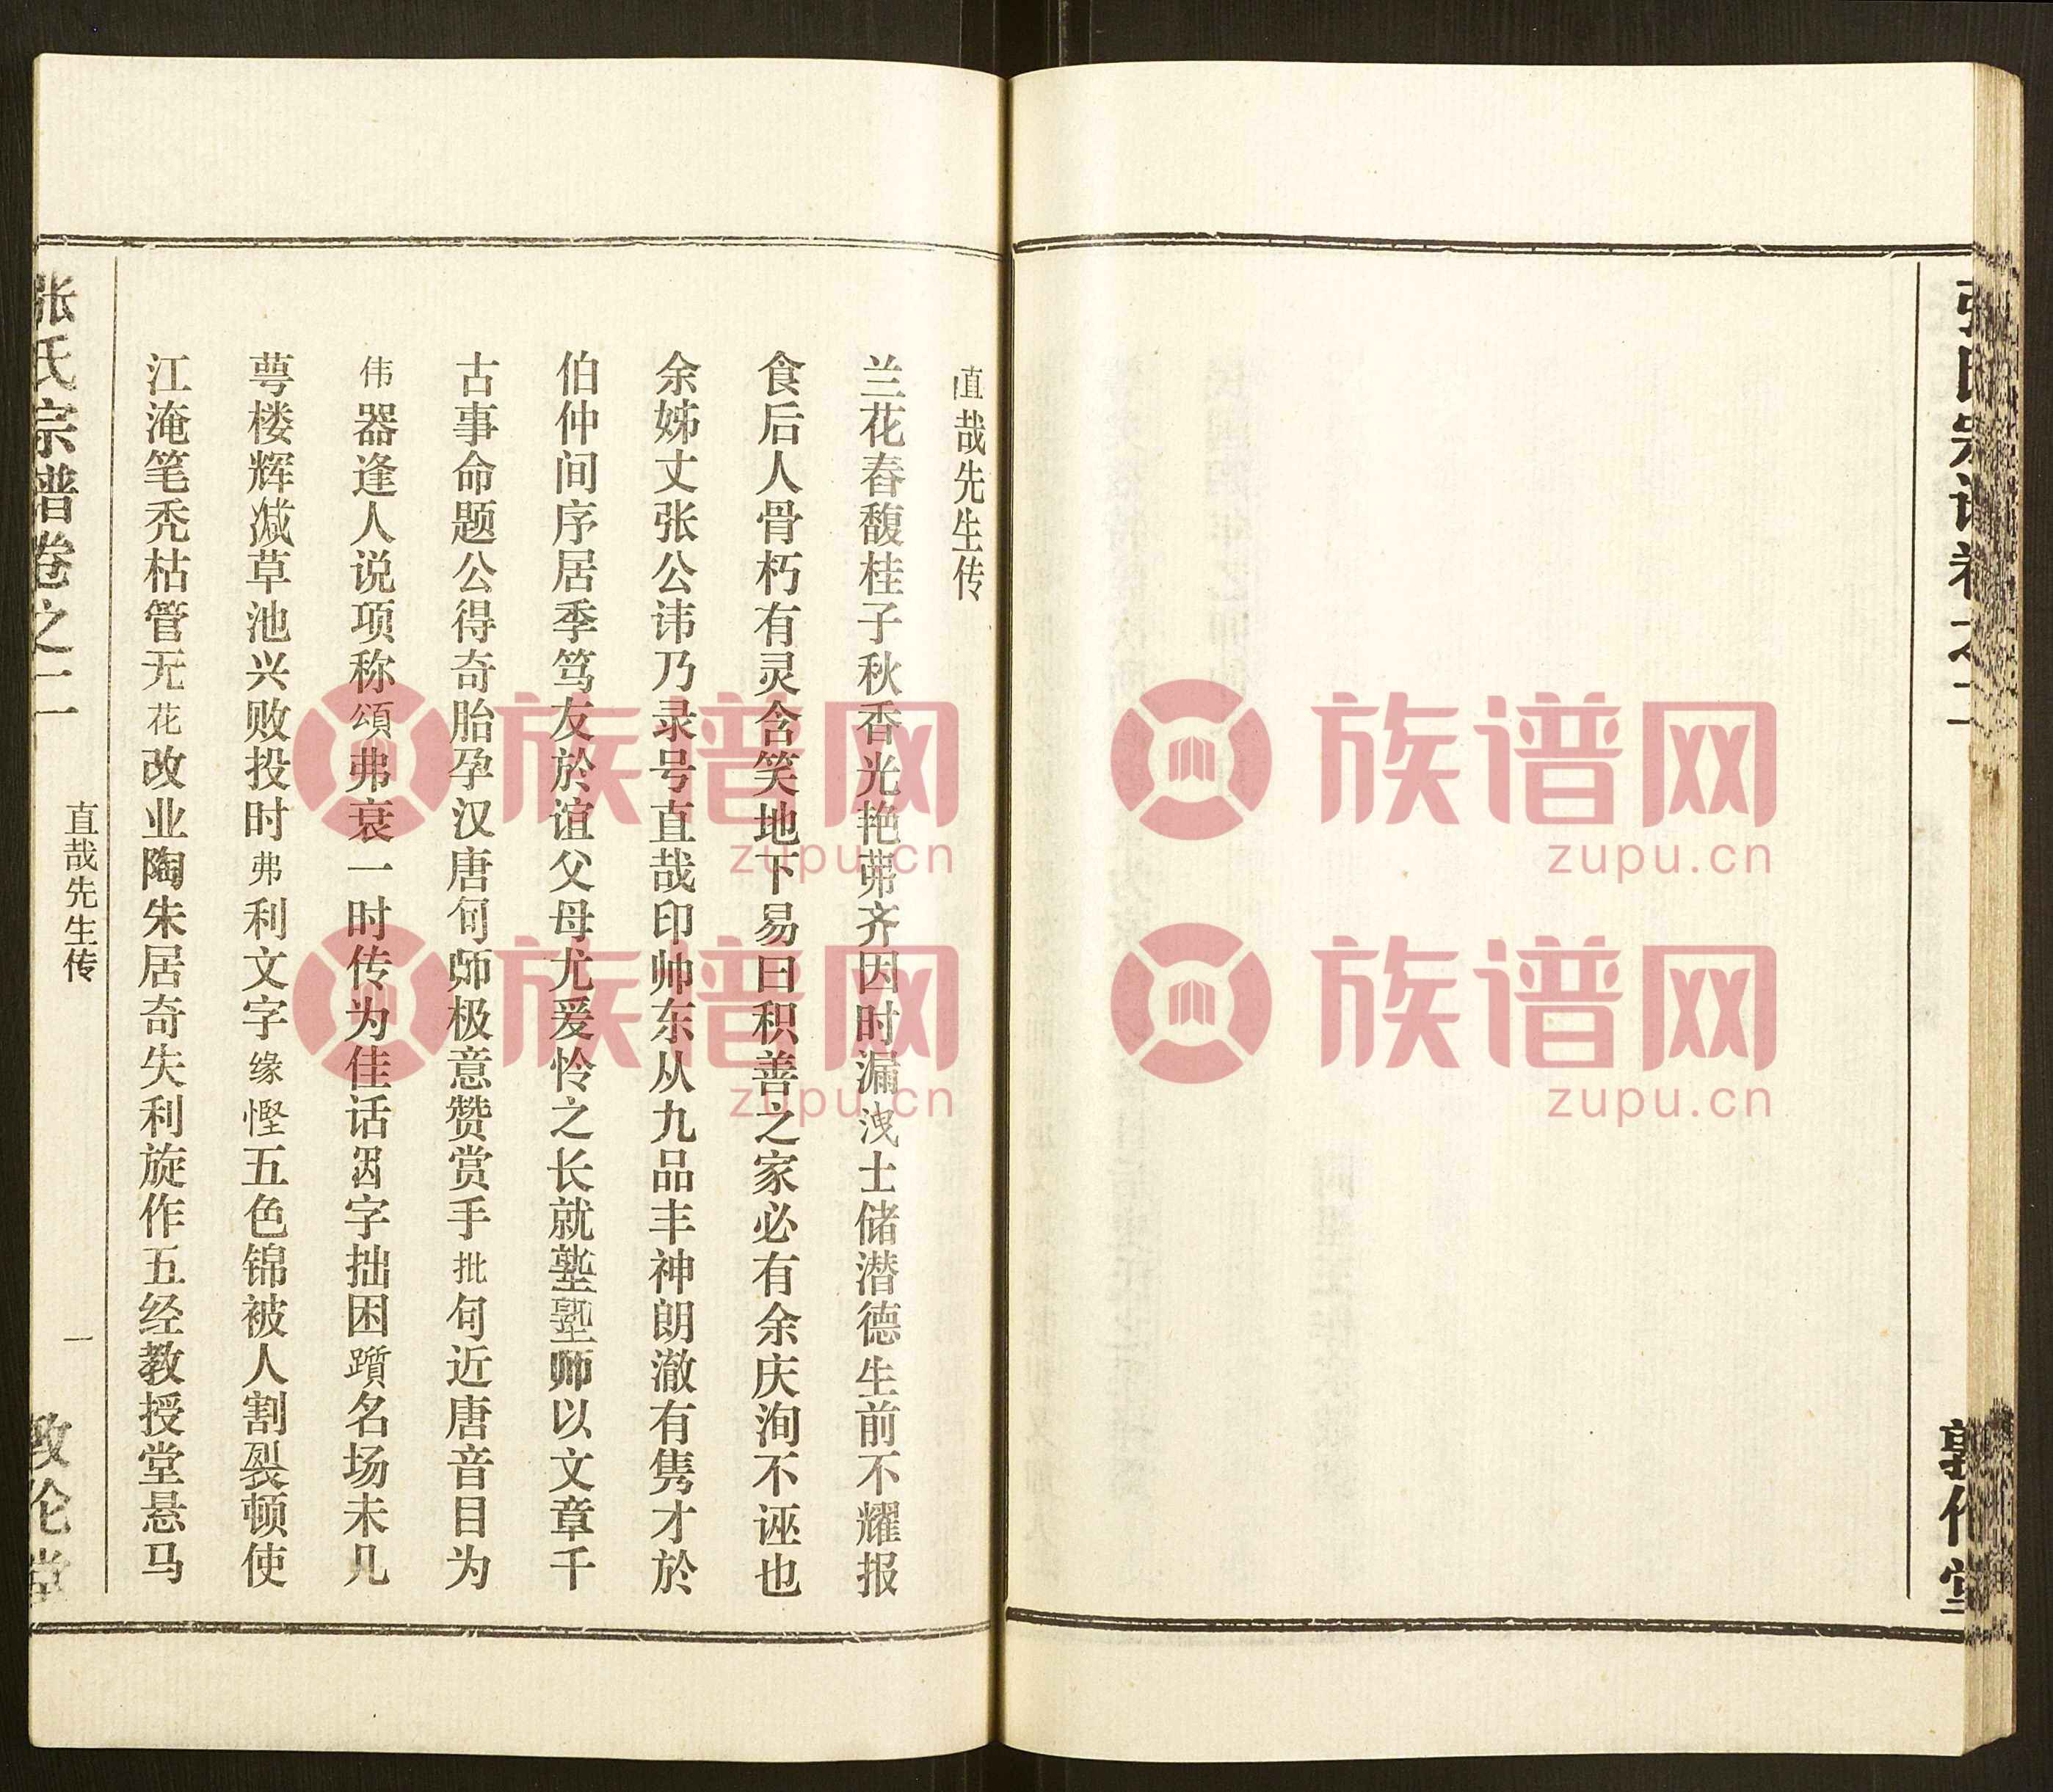 张氏宗谱卷之二
敦伦堂
直哉先生传
兰花春馥桂子秋香光艳弗齐因时漏洩士储潜德生前不耀报
食后人骨朽有灵含笑地下易曰积善之家必有余庆洵不诬也
余姊丈张公讳乃录号直哉印帅东从九品丰神朗澈有隽才於
伯仲间序居季笃友於谊父母尤爱怜之长就塾塾师以文章千
古事命题公得奇胎孕汉唐句师极意赞赏手批句近唐音目为
伟器逢人说项称颂弗衰一时传为佳话因字拙困踬名场未几
萼楼辉减草池兴败投时弗利文字缘悭五色锦被人割裂顿使
江淹笔秃枯管无花改业陶朱居奇失利旋作五经教授堂悬马
张氏宗谱卷之二
直哉先生传
一
敦伦堂
族谱网
zupu.cn
族谱网
zupu.cn
族谱网
zupu.cn
族谱网
zupu.cn